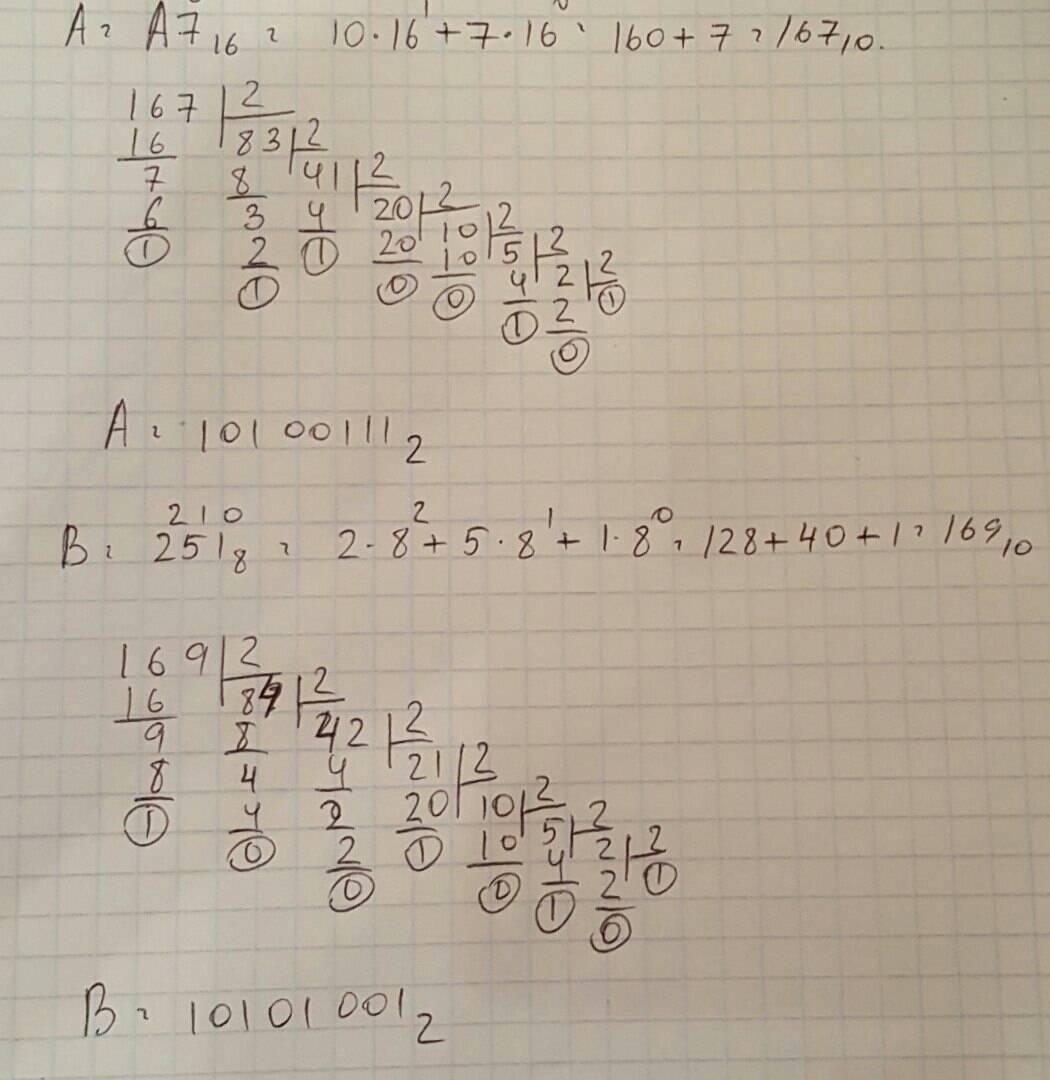 A = A7₁₆ = 10·16¹ + 7·16⁰ = 160 + 7 = 167₁₀.
167 | 2
16 83 | 2
7 8 41 | 2
6 3 4 20 | 2
1 2 1 20 10 | 2
1 0 10 5 | 2
0 4 2 | 2
1 2 1
0
A = 10100111₂
2 1 0
B = 251₈ = 2·8² + 5·8¹ + 1·8⁰ = 128 + 40 + 1 = 169₁₀
169 | 2
16 84 | 2
9 8 42 | 2
8 4 4 21 | 2
1 4 2 20 10 | 2
0 2 1 10 5 | 2
0 0 4 2 | 2
1 2 1
0
B = 10101001₂